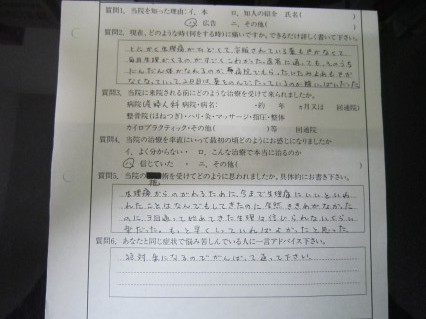 質問1. 当院を知った理由：イ、本 ロ、知人の紹介 氏名(
ハ、広告 ニ、その他(
質問2. 現在、どのような時(何をする時)に痛いですか。できるだけ詳しく書いて下さい。
とにかく生理痛がひどくて、市販されている薬も
毎月生理がくるのが
質問3. 当院に来院される前にどのような治療を受けて来られましたか。
病院(産婦人科 病院・病名: ・約 年 ヵ月又は 回通院)
整骨院(ほねつぎ)・ハリ・灸・マッサージ・指圧・整体
カイロプラクティック・その他( )等 回通院
質問4. 当院の治療を率直にいって最初の頃どのようにお感じになりましたか
イ、よく分からない・ ロ、こんな治療で本当に治るのか
ハ、信じていた ・ ニ、その他(
質問5. 当院の 術を受けてどのように思われましたか。具体的にお書き下さい。
生理痛からのがれるために、今まで生理痛にいいといわ
れたことはなんでもしてきたのに全然ききめがなかった
のに、3回通って始めてきた生理は信じられないくらい
楽だった。もっと早くしていればよかったと思った
質問6. あなたと同じ症状で悩み苦しんでいる人に一言アドバイス下さい。
絶対楽になるのでがんばって通って下さい。